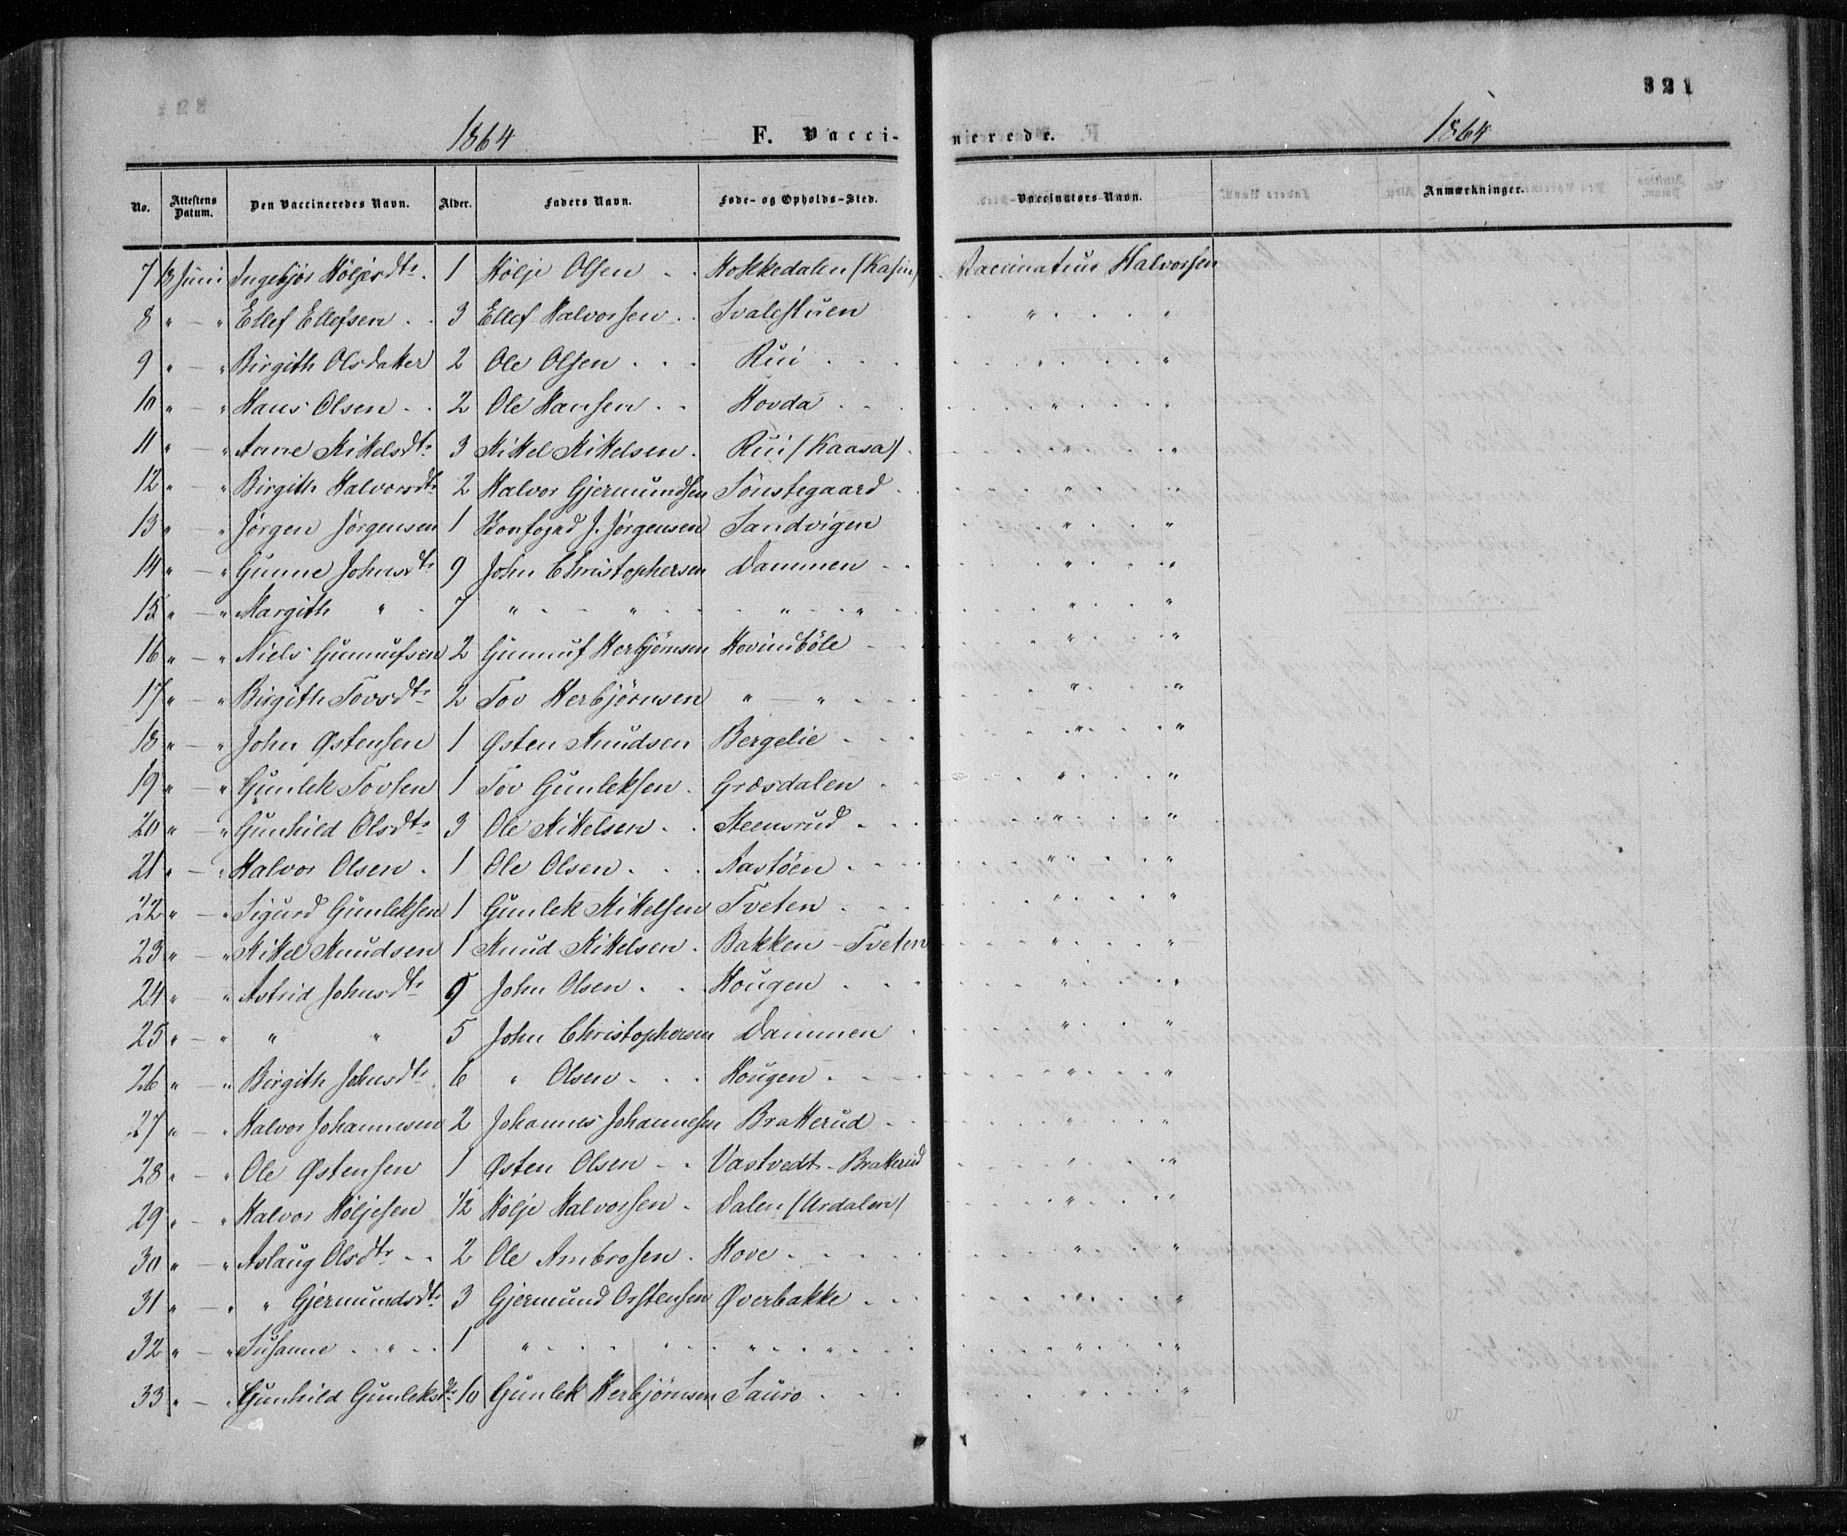 321
1864 F. Vacci- nerede. 1864
No. Attestens Datum. Den Vaccineredes Navn. Alder. Faders Navn. Føde- og Opholds-Sted. Vaccinators Navn. Anmærkninger.
7 13 Juni Ingebjør Höljesdtr. 1 Hölje Olsen Hokkedalen (Kasin) Vaccinateur Halvorsen
8 " — " Ellef Ellefsen 3 Ellef Halvorsen Svalestuen " "
9 " — " Birgith Olsdatter 2 Ole Olsen Rui " "
10 " — " Hans Olsen 2 Ole Hansen Hovda " "
11 " — " Anne Kikelsdtr 3 Kikel Kikelsen Rui (Kaasa) " "
12 " — " Birgith Halvorsdtr 2 Halvor Gjermundsen Tönstegaard " "
13 " — " Jörgen Jörgensen 1 J. Jörgensen Sandvigen " "
14 " — " Gunne Johnsdtr 9 John Christophersen Dammen " "
15 " — " Margith " 7 " " " " " "
16 " — " Niels Gunnufsen 2 Gunnuf Herbjörnsen Hovindböle " "
17 " — " Birgith Tovsdtr 2 Tov Herbjörnsen " — " " "
18 " — " John Østensen 1 Østen Knudsen Bergelie " "
19 " — " Gunlek Tovsen 1 Tov Gunleksen Græsdalen " "
20 " — " Gunhild Olsdtr 3 Ole Kikelsen Steensrud " "
21 " — " Halvor Olsen 1 Ole Olsen Aastöen " "
22 " — " Sigurd Gunleksen 1 Gunlek Kikelsen Tveten " "
23 " — " Kikel Knudsen 1 Knud Kikelsen Bakken - Tveten " "
24 " — " Astrid Johnsdtr 9 John Olsen Hougen " "
25 " — " " " 5 John Christophersen Dammen " "
26 " — " Birgith Johnsdtr 6 " Olsen Hougen " "
27 " — " Halvor Johannesen 2 Johannes Johannesen Bratterud " "
28 " — " Ole Østensen 1 Østen Olsen Vastvedt - Bratterud " "
29 " — " Halvor Höljesen 1/2 Hölje Halvorsen Dalen (Urdalen) " "
30 " — " Aslaug Olsdtr 2 Ole Ambrosen Hove " "
31 " — " " Gjermundsdtr 3 Gjermund Østensen Øverbakke " "
32 " — " Susanne " 1 " " " " " "
33 " — " Gunhild Gunleksdtr 10 Gunlek Herbjörnsen Sauro " "